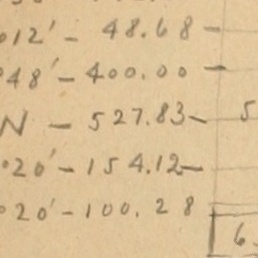 °12' - 48.68 -
°48' - 400.00 -
N - 527.83 - 5
°20' - 154.12 -
°20' - 100.28
6